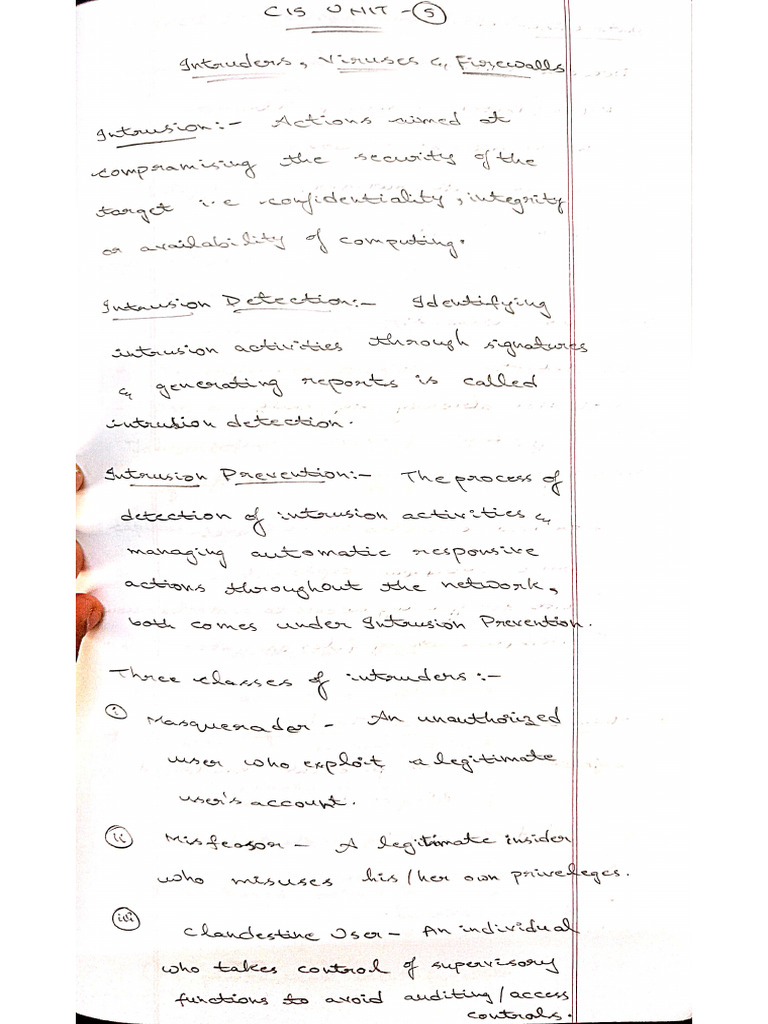 CIS UNIT - 5
Intruders, Viruses & Firewalls
Intrusion:- Actions aimed at
compramising the security of the
target i.e confidentiality, integrity
or availability of computing.
Intrusion Detection:- Identifying
intrusion activities through signatures
& generating reports is called
intrusion detection.
Intrusion Prevention:- The process of
detection of intrusion activities &
managing automatic responsive
actions throughout the network,
both comes under Intrusion Prevention.
Three classes of intruders:-
i Masquerader - An unauthorized
user who exploit a legitimate
user's account.
ii Misfeasor - A legitimate insider
who misuses his/her own priveleges.
iii Clandestine User - An individual
who takes control of supervisory
functions to avoid auditing/access
controls.